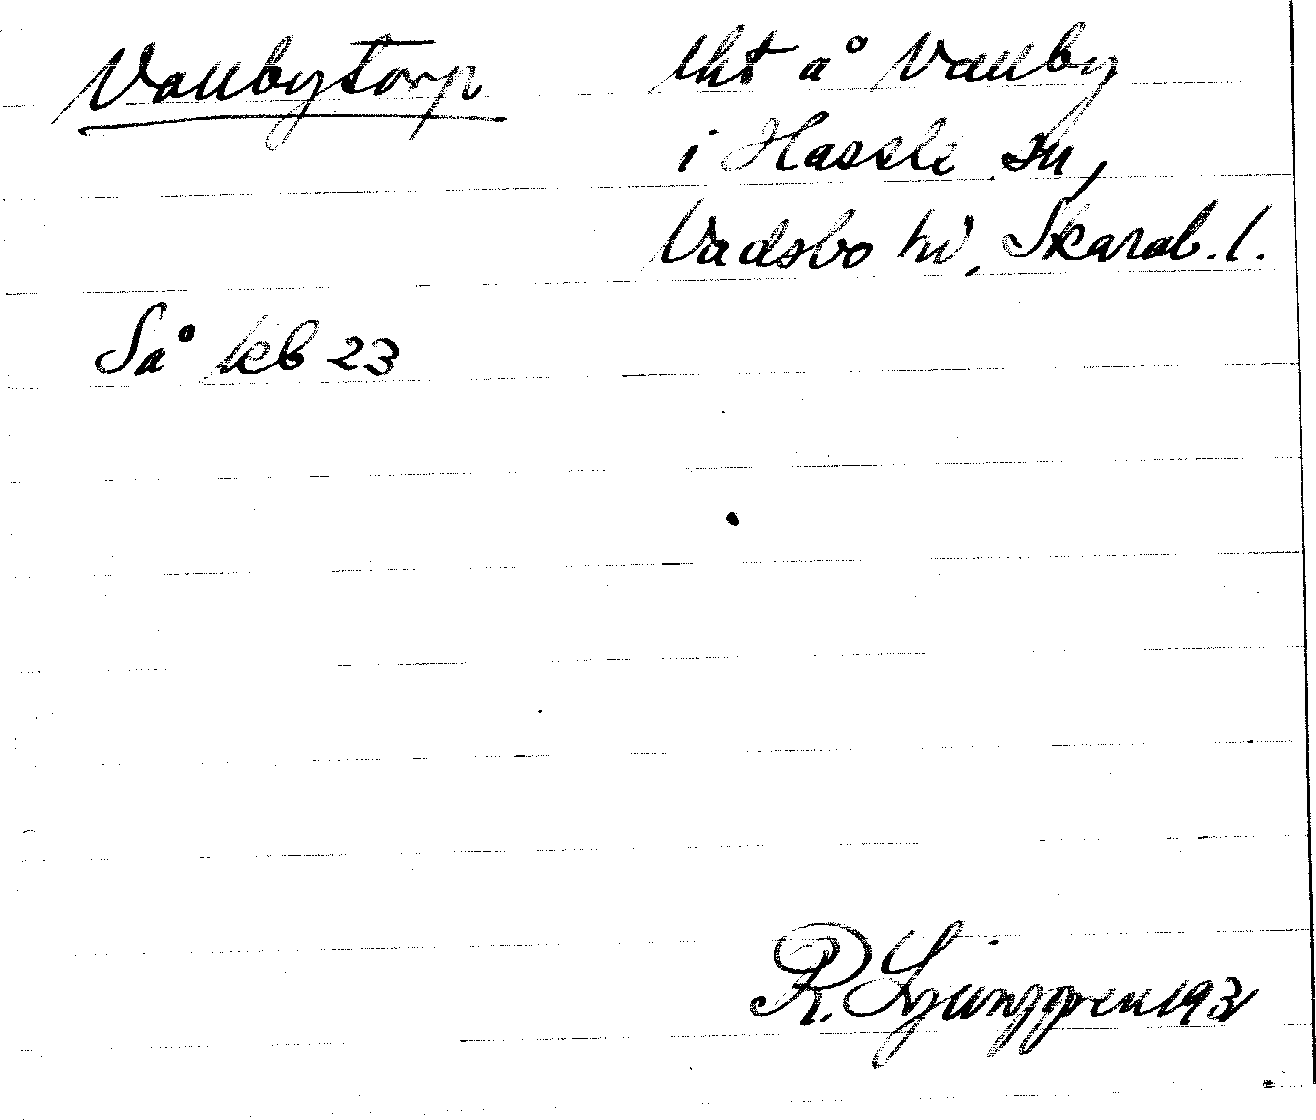 Vallbytorp
lht å Vallby
i Hassle sn,
Vadsbo hd, Skarab. l.
Så kb 23
R. Ljunggren 1931